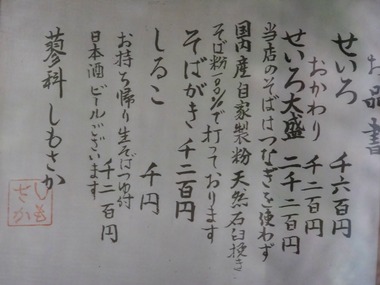 お品書
せいろ 千六百円
おかわり 千二百円
せいろ大盛 二千二百円
当店のそばはつなぎを使わず
国内産自家製粉天然石臼挽き
そば粉100%で打っております
そばがき 千二百円
しるこ 千円
お持ち帰り生そばつゆ付 千二百円
日本酒 ビールございます
蓼科 しもさか
しもさか